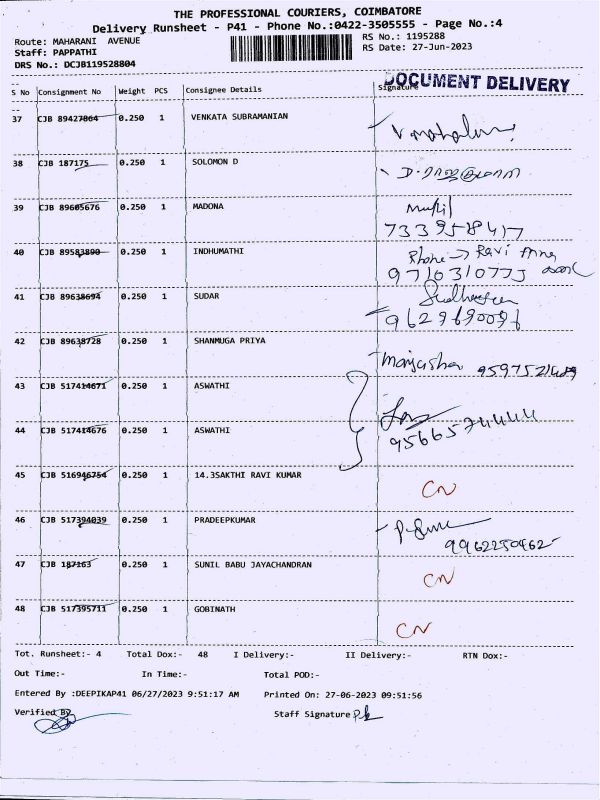 THE PROFESSIONAL COURIERS, COIMBATORE
Delivery Runsheet - P41 - Phone No.:0422-3505555 - Page No.:4
Route: MAHARANI AVENUE
RS No.: 1195288
Staff: PAPPATHI
RS Date: 27-Jun-2023
DRS No.: DCJB119528804
DOCUMENT DELIVERY
S No Consignment No Weight PCS Consignee Details Signature
37 CJB 89427864 0.250 1 VENKATA SUBRAMANIAN
38 CJB 187175 0.250 1 SOLOMON D
39 CJB 89605676 0.250 1 MADONA
733958417
40 CJB 89583890 0.250 1 INDHUMATHI Phone → Ravi
9710310773
41 CJB 89638694 0.250 1 SUDAR
9629690096
42 CJB 89638728 0.250 1 SHANMUGA PRIYA
43 CJB 517414671 0.250 1 ASWATHI
44 CJB 517414676 0.250 1 ASWATHI
9566574444
45 CJB 516946754 0.250 1 14.3SAKTHI RAVI KUMAR CN
46 CJB 517394039 0.250 1 PRADEEPKUMAR
9962250462
47 CJB 187163 0.250 1 SUNIL BABU JAYACHANDRAN CN
48 CJB 517395711 0.250 1 GOBINATH CN
Tot. Runsheet:- 4 Total Dox:- 48 I Delivery:- II Delivery:- RTN Dox:-
Out Time:- In Time:- Total POD:-
Entered By :DEEPIKAP41 06/27/2023 9:51:17 AM Printed On: 27-06-2023 09:51:56
Verified By Staff Signature